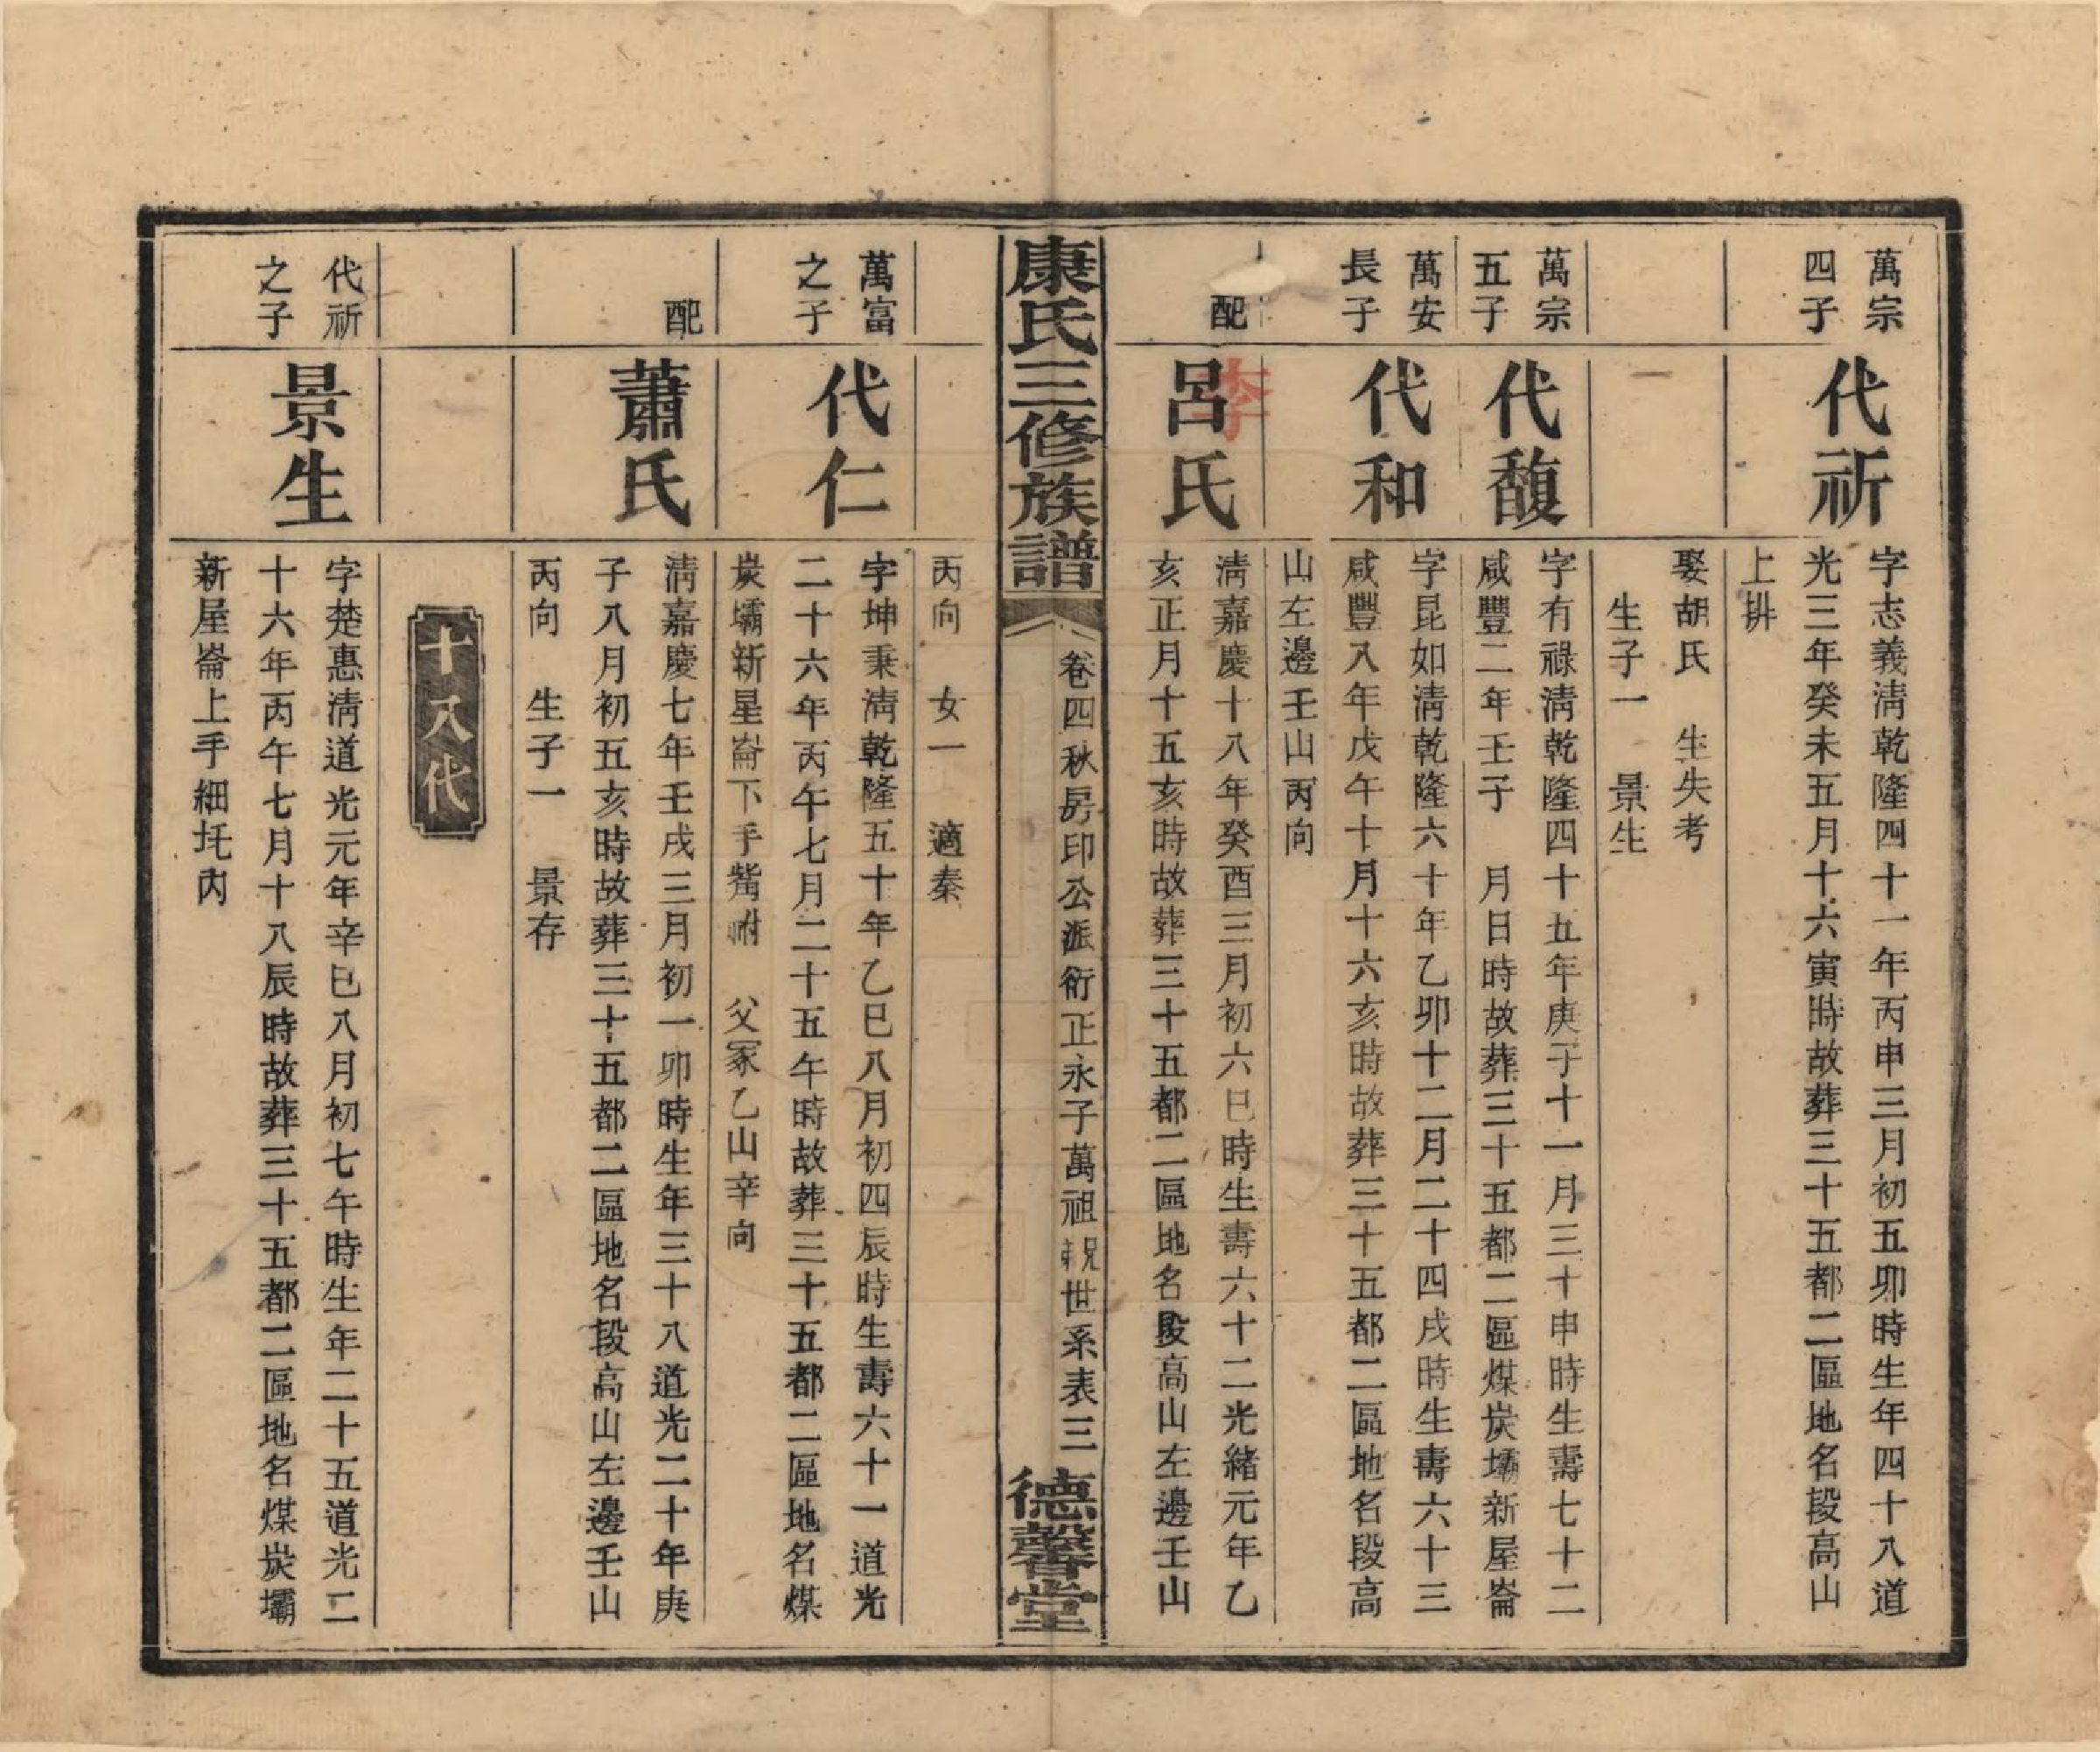 萬宗
四子
代祈
字志義淸乾隆四十一年丙申三月初五卯時生年四十八道
光三年癸未五月十六寅時故葬三十五都二區地名段高山
上排
娶胡氏　生失考
生子一　景生
萬宗
五子
代馥
字有祿淸乾隆四十五年庚子十一月三十申時生壽七十二
咸豐二年壬子　月日時故葬三十五都二區煤炭壩新屋崙
萬安
長子
代和
字昆如淸乾隆六十年乙卯十二月二十四戌時生壽六十三
咸豐八年戊午十月十六亥時故葬三十五都二區地名段高
山左邊壬山丙向
配
呂氏
李
淸嘉慶十八年癸酉三月初六巳時生壽六十二光緒元年乙
亥正月十五亥時故葬三十五都二區地名段高山左邊壬山
康氏三修族譜
卷四秋房印公派衍正永子萬祖親世系表三
德馨堂
丙向　女一　適秦
萬富
之子
代仁
字坤秉淸乾隆五十年乙巳八月初四辰時生壽六十一道光
二十六年丙午七月二十五午時故葬三十五都二區地名煤
炭壩新星崙下手觜祔　父冢乙山辛向
配
蕭氏
淸嘉慶七年壬戌三月初一卯時生年三十八道光二十年庚
子八月初五亥時故葬三十五都二區地名段高山左邊壬山
丙向　生子一　景存
十八代
代祈
之子
景生
字楚惠淸道光元年辛巳八月初七午時生年二十五道光二
十六年丙午七月十八辰時故葬三十五都二區地名煤炭壩
新屋崙上手細圫內